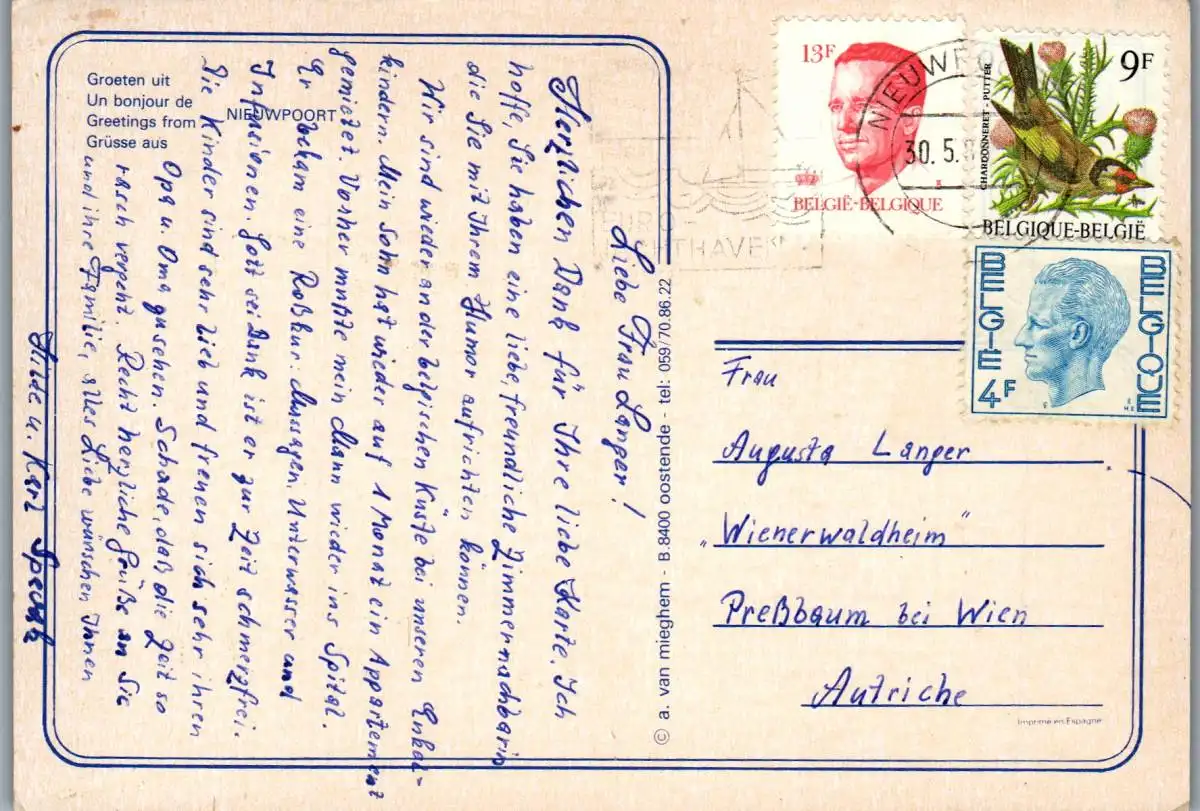 Groeten uit
Un bonjour de
Greetings from
Grüsse aus
NIEUWPOORT
Liebe Frau Langer!
Herzlichen Dank für Ihre liebe Karte. Ich
hoffe, Sie haben eine liebe, freundliche Zimmernachbarin
die Sie mit Ihrem Humor aufrichten können.
Wir sind wieder an der belgischen Küste bei unseren Enkel-
kindern. Mein Sohn hat wieder auf 1 Monat ein Appartement
gemietet. Vorher mußte mein Mann wieder ins Spital.
Er bekam eine Roßkur: Massagen, Unterwasser und
Infusionen. Gott sei Dank ist er zur Zeit schmerzfrei.
Die Kinder sind sehr lieb und freuen sich sehr ihren
Opa u. Oma zu sehen. Schade, daß die Zeit so
rasch vergeht. Recht herzliche Grüße an Sie
und ihre Familie, alles Liebe wünschen Ihnen
Hilde u. Karl Specht
© a. van mieghem - B.8400 oostende - tel: 059/70.86.22
13F
BELGIË-BELGIQUE
9F
CHARDONNERET - PUTTER
BELGIQUE-BELGIË
BELGIE
BELGIQUE
4F
NIEUWPO
30. 5. 8
EURO-
JACHTHAVEN
Frau
Augusta Langer
"Wienerwaldheim"
Preßbaum bei Wien
Autriche
Imprimé en Espagne